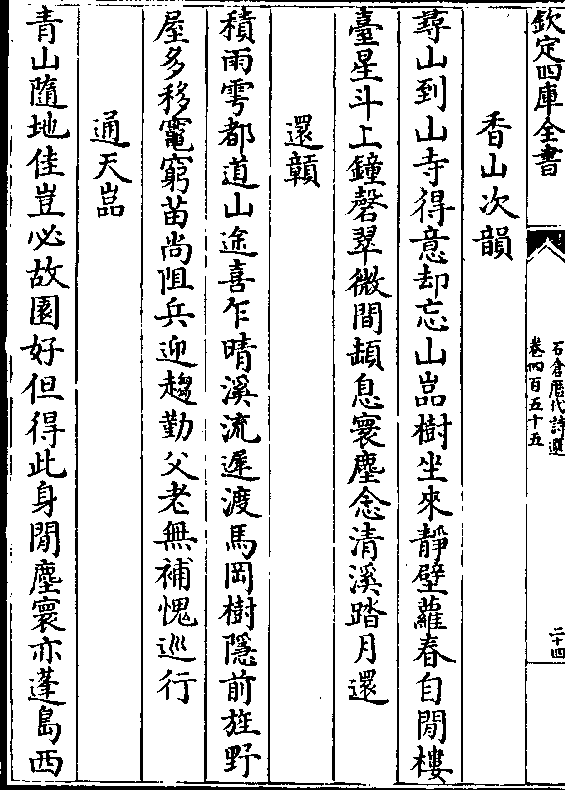 欽定四庫全書
石倉歷代詩選
卷四百五十五
二十四
香山次韻
尋山到山寺得意却忘山嵓樹坐來靜壁蘿春自閒樓
臺星斗上鐘磬翠微間頓息寰塵念清溪踏月還
還贑
積雨雩都道山途喜乍晴溪流遲渡馬岡樹隱前旌野
屋多移竈窮苗尚阻兵迎趨勤父老無補愧巡行
通天嵓
青山隨地佳豈必故園好但得此身閒塵寰亦蓬島西